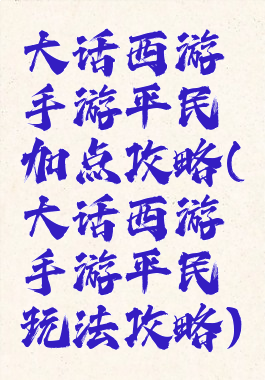 大话西游
手游平民
加点攻略(
大话西游
手游平民
玩法攻略)